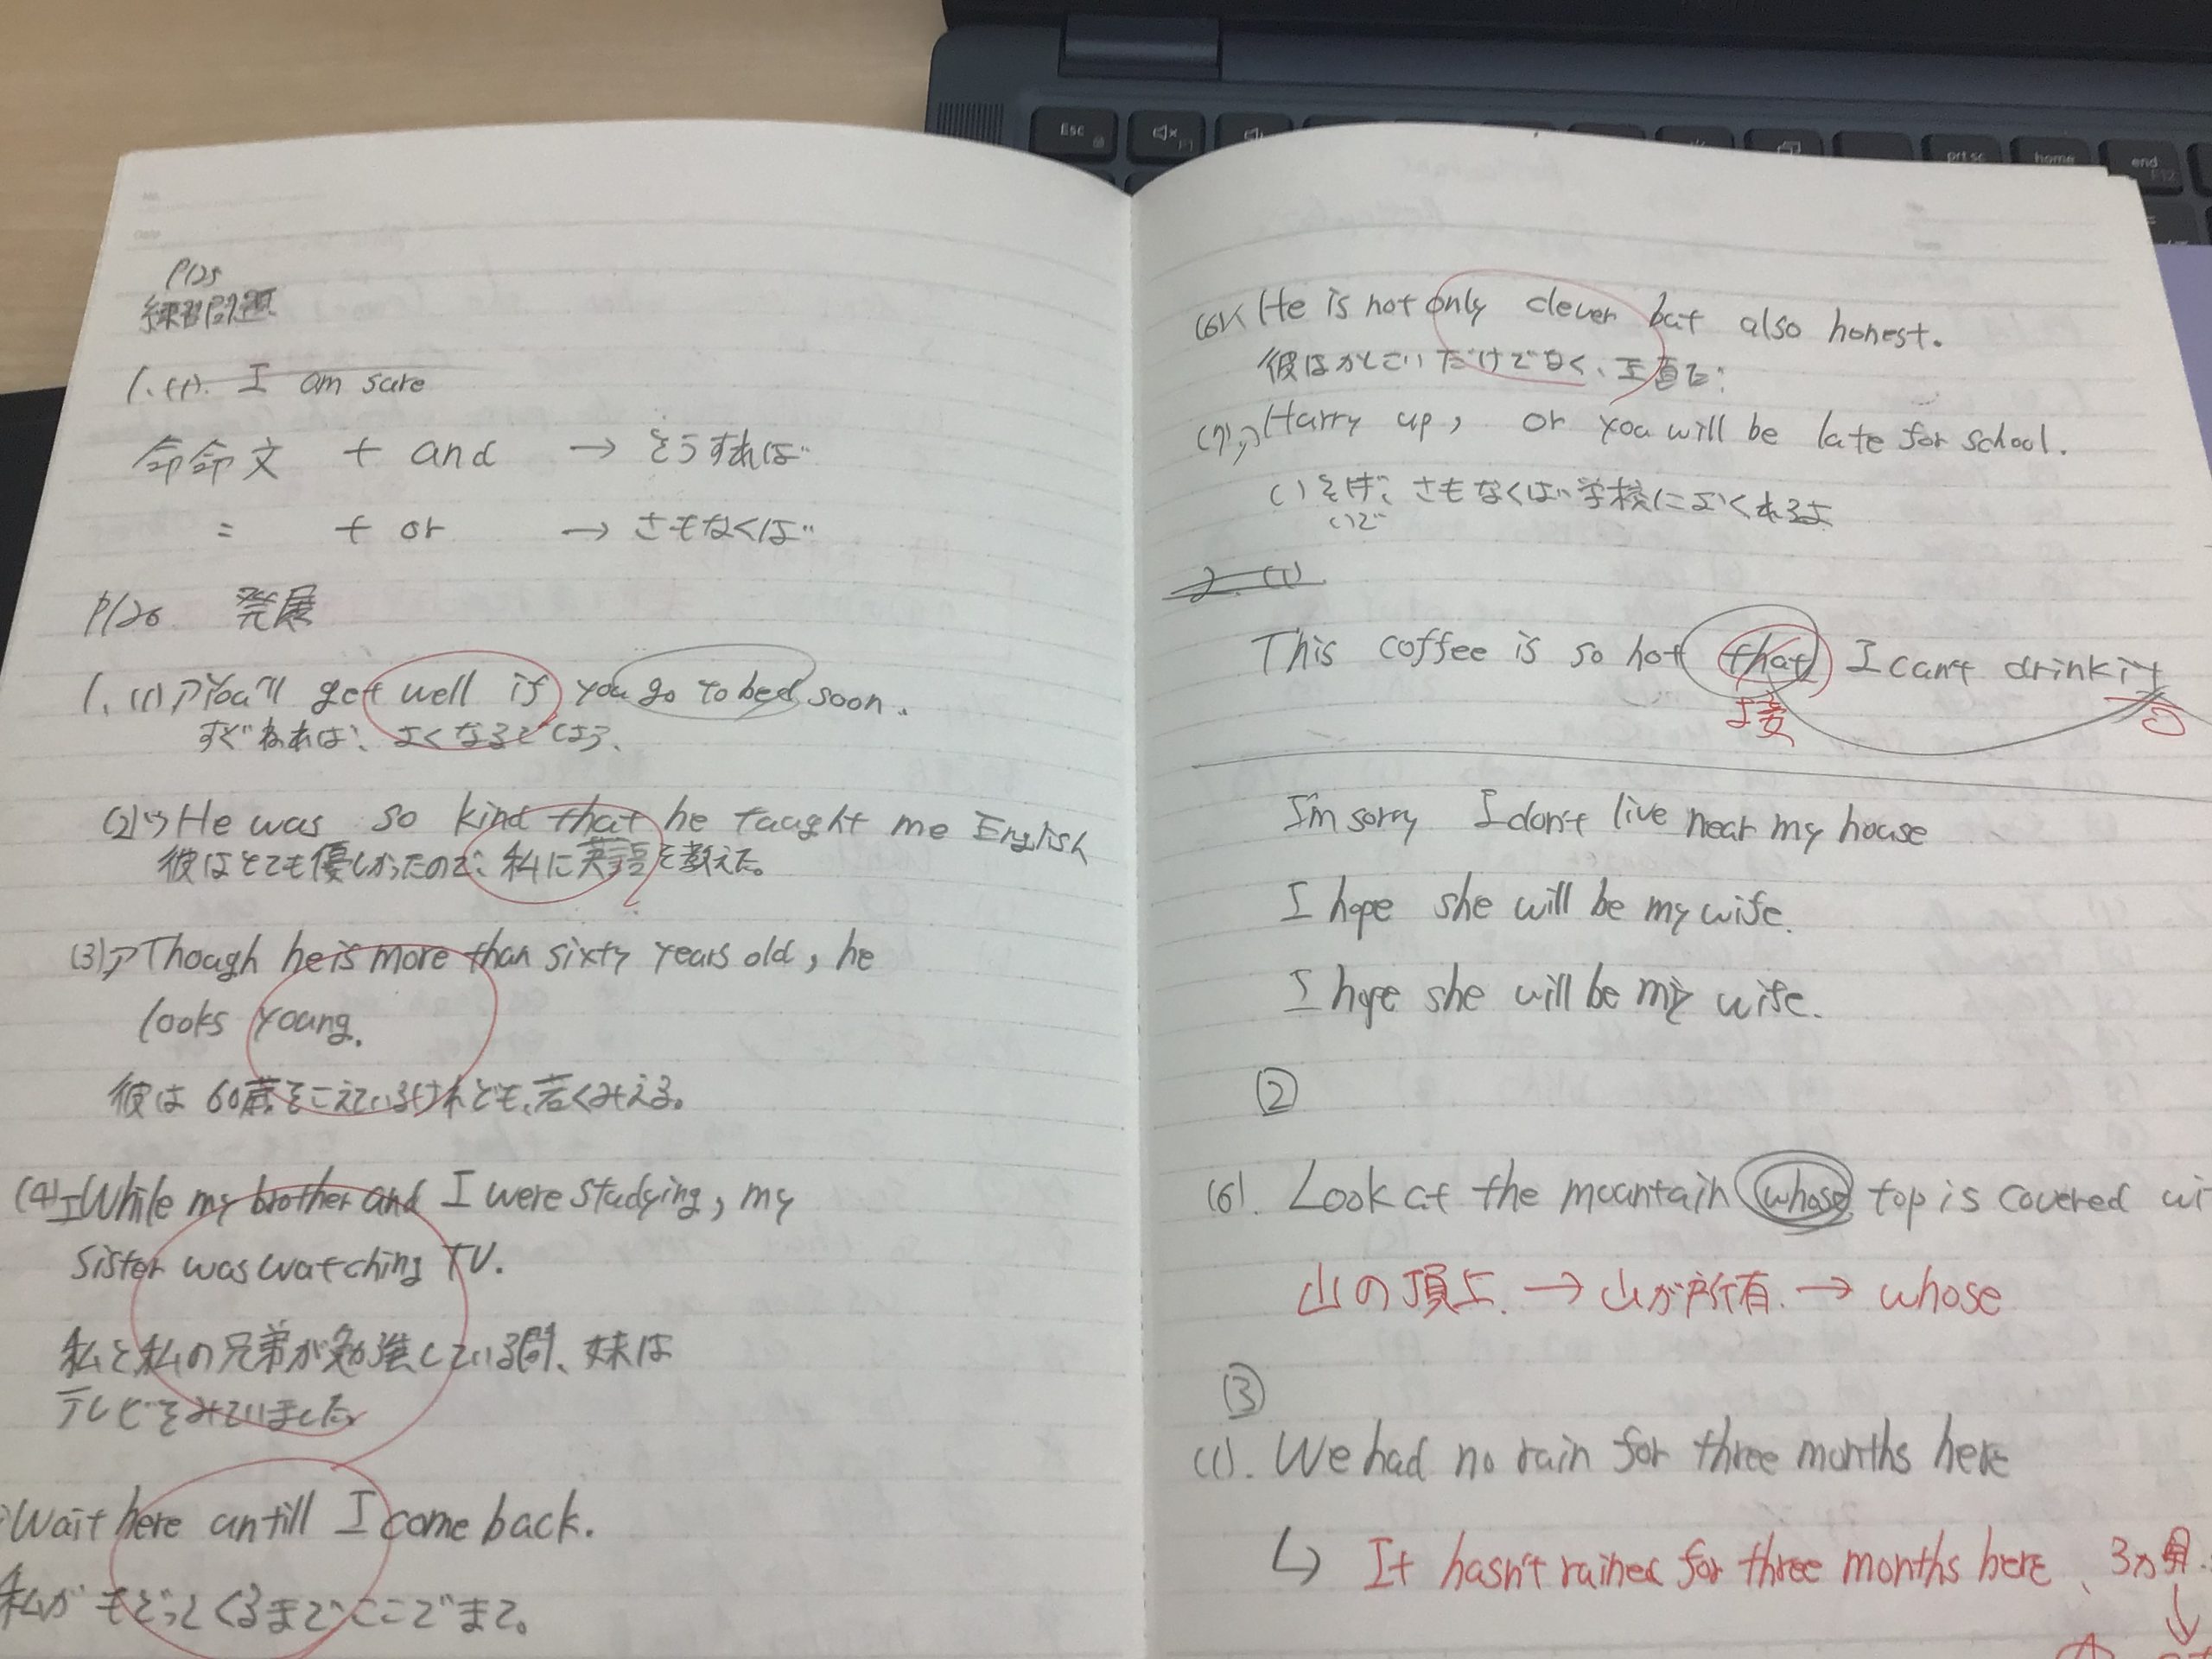 P125
練習問題
1. (1). I am sure
命令文 + and → そうすれば
= + or → さもなくば
P126 発展
1. (1)ア You'll get well if you go to bed soon.
すぐねれば、よくなるでしょう、
(2)ウ He was so kind that he taught me English
彼はとても優しかったので、私に英語を教えた。
(3)ア Though he is more than sixty years old, he
looks young.
彼は60歳をこえているけれども、若くみえる。
(4)エ While my brother and I were studying, my
sister was watching TV.
私と私の兄弟が勉強している間、妹は
テレビをみていました
Wait here untill I come back.
私がもどってくるまでここでまて。
(6)イ He is not only clever but also honest.
彼はかしこいだけでなく、正直だ。
(7)ア Hurry up, or you will be late for school.
いそげ、さもなくば学校におくれるよ
いで
2. (1)
This coffee is so hot that I can't drink it
接
I'm sorry I don't live near my house
I hope she will be my wife.
I hope she will be my wife.
②
(6). Look at the mountain whose top is covered wi
山の頂上. → 山が所有. → whose
③
(1). We had no rain for three months here
↳ It hasn't rained for three months here 、3ヵ月
↓
Esc
F1
prt sc
home
end
F12